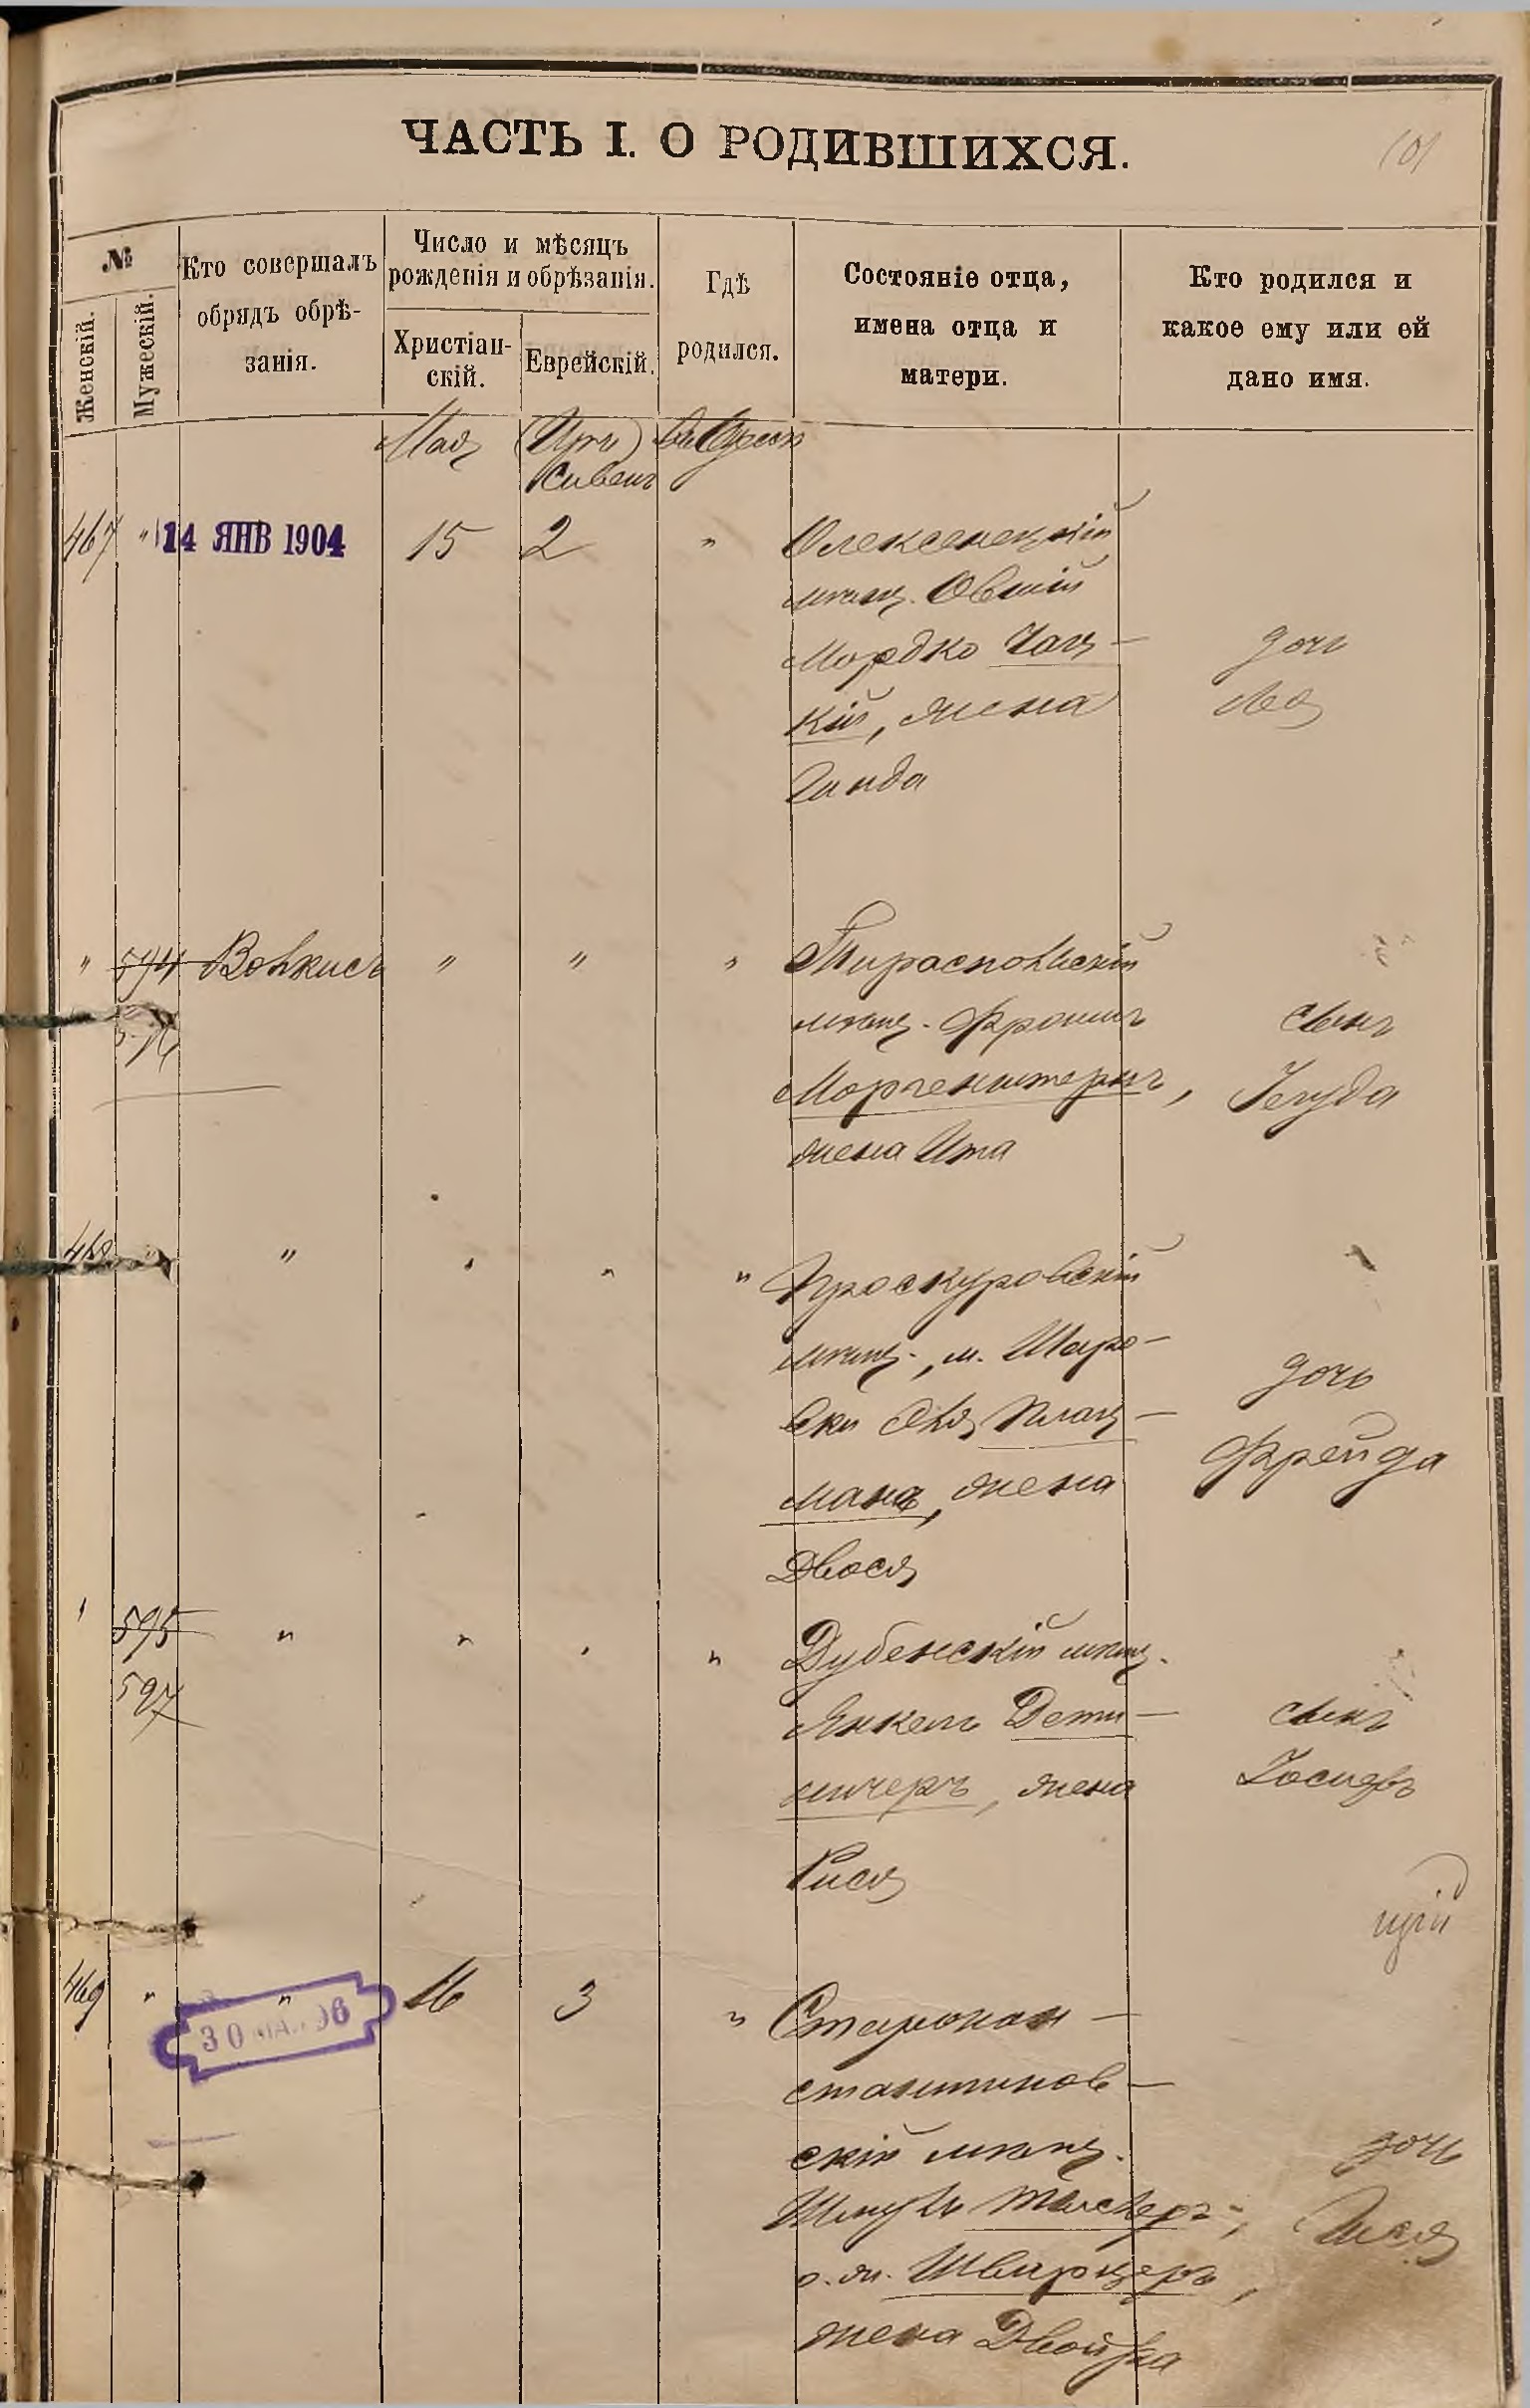 ЧАСТЬ I. О РОДИВШИХСЯ.
101
№
Женскій.
Мужескій.
Кто совершалъ
обрядъ обрѣ-
занія.
Число и мѣсяцъ
рожденія и обрѣзанія.
Христіан-
скій.
Еврейскій.
Гдѣ
родился.
Состояніе отца,
имена отца и
матери.
Кто родился и
какое ему или ей
дано имя.
Мая
Сивенъ
въ Одессѣ
467 " 14 ЯНВ 1904 15 2 " Олексенецкій
мѣщ. Овшій
Мордко Чац-
кій, жена
Гинда
дочь
Лея
" 594 Волкисъ " " " Тираспольскій
596
мѣщ. Фроимъ
Моргенштернъ,
жена Ита
сынъ
Іегуда
468 " " " " " Проскуровскій
мѣщ., м. Шаро-
вки
мана, жена
Двося
дочь
Фрейда
" 595 " " " " Дубенскій мѣщ.
597
Янкель
жена
Рися
сынъ
Іосифъ
469 " " 16 3 " Старокон-
стантинов-
скій мѣщ.
Шмуль
о. ж. Шварцеръ,
жена Двойра
дочь
30 МАЯ 96